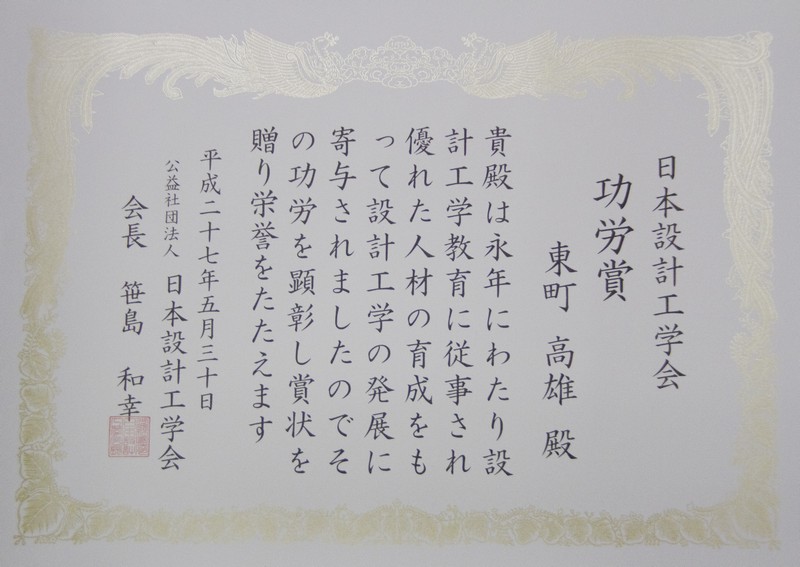 日本設計工学会
功労賞
東町 高雄 殿
貴殿は永年にわたり設
計工学教育に従事され
優れた人材の育成をも
って設計工学の発展に
寄与されましたのでそ
の功労を顕彰し賞状を
贈り栄誉をたたえます
平成二十七年五月三十日
公益社団法人 日本設計工学会
会長 笹島 和幸